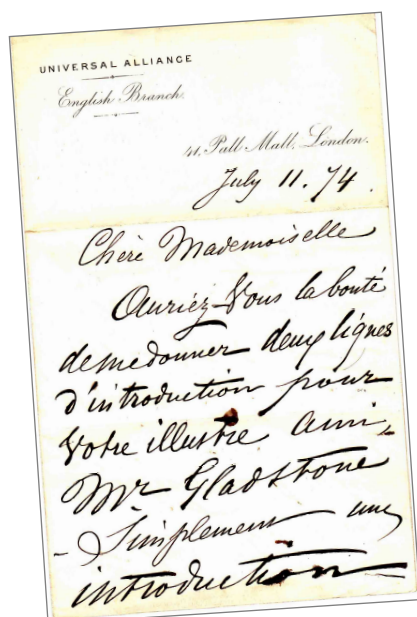 UNIVERSAL ALLIANCE
English Branch.
41, Pall Mall, London.
July 11. 74.
Chère Mademoiselle
Auriez-Vous la bonté
de me donner deux lignes
d'introduction pour
Votre illustre ami,
Mr Gladstone
- Simplement une
introduction